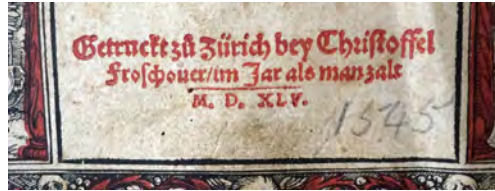 Getruckt zů Zürich bey Christoffel
Froschouer/im Jar als man zalt
M. D. XLV.
1545